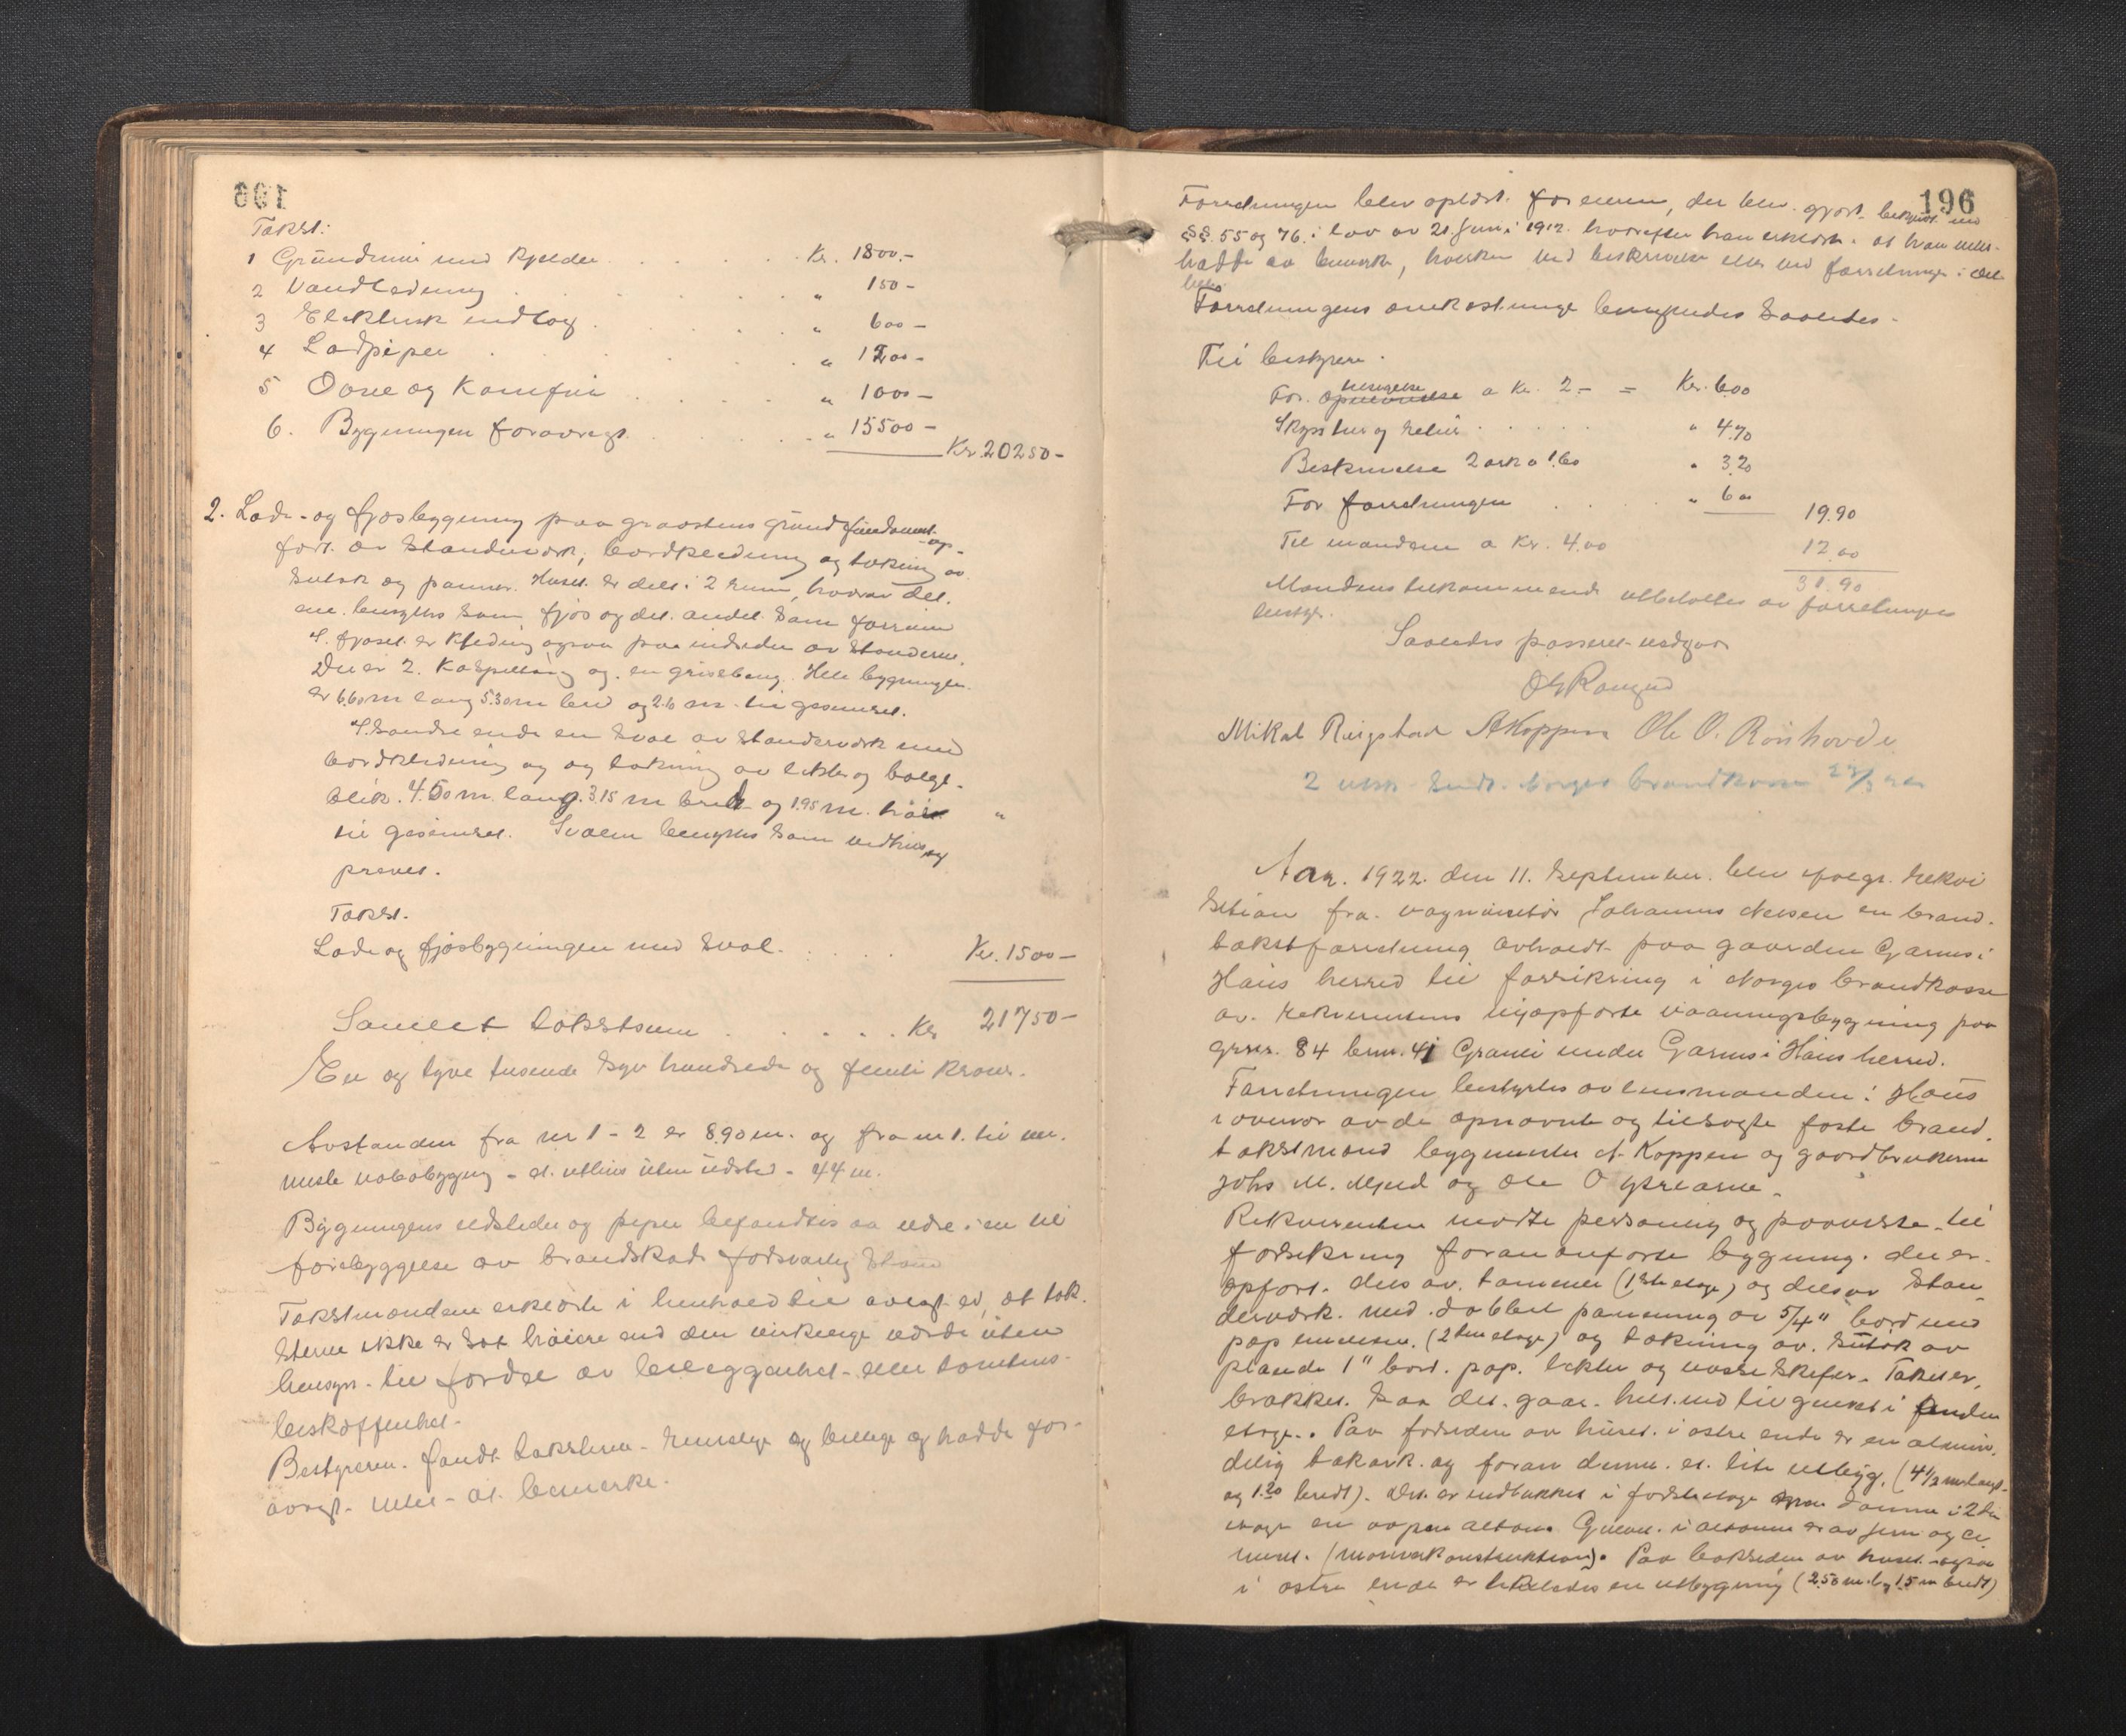 Takst:
1 Grundmur med Kjelder . . . . Kr. 1800.-
2 Vandledning . . . . " 150 -
3 Elektrisk indlag . . . . " 600 -
4 Ladpiper . . . . " 1200 -
5 Ovne og Komfur . . . . " 1000 -
6. Bygningen foravrigt . . . . " 15500 -
Kr. 20250 -
2. Lade- og fjøsbygning paa graastens grundfundament op-
ført av Standerverk, bordklædning og tækning av
sutak og panner. Huset er delt i 2 rum, hvorav det
ene benyttes som fjøs og det andet som forrum
I fjøset er Klædning ogsaa paa indsiden av Standerne.
Der er 2 og en grisebing. Hele bygningen
er 6.60 m lang 5.30 m bred og 2.6 m til gesimset.
I søndre ende en Sval av Standerverk med
bordklædning og og tækning av lekter og bølge-
blik. 4.50 m. lang. 3.15 m bred og 1.95 m. høi "
til gesimset. Svalen benyttes som vedhus og
privet.
Takst.
Lade og fjøsbygningen med Sval . . . . Kr. 1500 -
Samlet takstsum . . . . . Kr 21750 -
En og tyve tusende Syv hundrede og femti Kroner.
Avstanden fra nr 1 - 2 er 8.90 m. og fra nr 1. til nær-
meste nabobygning - et uthus uten ildsted - 44 m.
Bygningens ildsteder og piper befandtes aa være i en til
forebyggelse av brandskade forsvarlig Stand
Takstmændene erklærte i henhold til avlagt ed, at tak-
sterne ikke er sat høiere end den virkelige værdi uten
hensyn til fordel av beliggenhet eller tomtens
beskaffenhet.
Bestyreren fandt taksterne rimelige og billige og hadde for-
øvrigt intet at bemerke.
196
Forretningen blev oplæst for eieren, der blev gjort bekjent med
§§. 55 og 76 i lov av 21. Juni 1912. hvorefter han erklærte at han intet
hadde aa bemerke, hverken ved beskrivelse eller ved forretningen i det
hele
Forretningens omkostninger beregnedes Saaledes -
Til bestyrer.
For berigelse opnævnelse a Kr. 2 - = Kr. 6.00
Skyss tur og retur . . . . . " 4.70
Beskrivelse 2 ark a 1.60 " 3.20
For forretningen . . . " 6 00 19.90
Til mændene a Kr. 4.00 12.00
31.90
Mændenes tilkommende utbetaltes av forretningens
bestyr.
Saaledes passeret - utdgaar
Mikal Ringstad A Koppen Ole O. Rønhovde
2 utsk. Sendt Norges brandkasse
Aar. 1922. den 11. September blev ifølge rekvi
sition fra vognvisitør Johannes Nelsen en brand-
takstforretning avholdt paa gaarden Garnes i
Haus herred til forsikring i Norges brandkasse
av rekvirentens nyopførte vaaningsbygning paa
grnr. 84 brnr. 41 Granli under Garnes i Haus herred.
Forretningen bestyrtes av lensmanden i Haus
i overvær av de opnævnte og tilsagte faste brand-
takstmænd byggmester A. Koppen og gaardbrukerne
Johs M. Mjeld og Ole O Ystrearne.
Rekvirenten møtte personlig og paaviste til
forsikring foran anførte bygning. den er
opført dels av tømmer (1ste etage) og dels av Stan-
derverk med dobbelt panning av 5/4" bord med
pap imellem (2den etage) og tækning av sutak av
pløiede 1" bord. pap. lekter og Skifer. Taket er
brækket. Saa det gaar helt ned til gulvet i anden
etage. Paa forsiden av huset i østre ende er en almin-
delig takark og foran denne et lite utbygg. (4 1/2 m langt
og 1.20 bredt). Det er indbukket i første etage danner i 2den
etage en aapen altan. Gulvet i altanen er av jern og ce-
ment. (monierkonstruktion). Paa baksiden av huset ogsaa
i østre ende er likeledes en utbygning (2.50 m. l. og 1.5 m bredt)